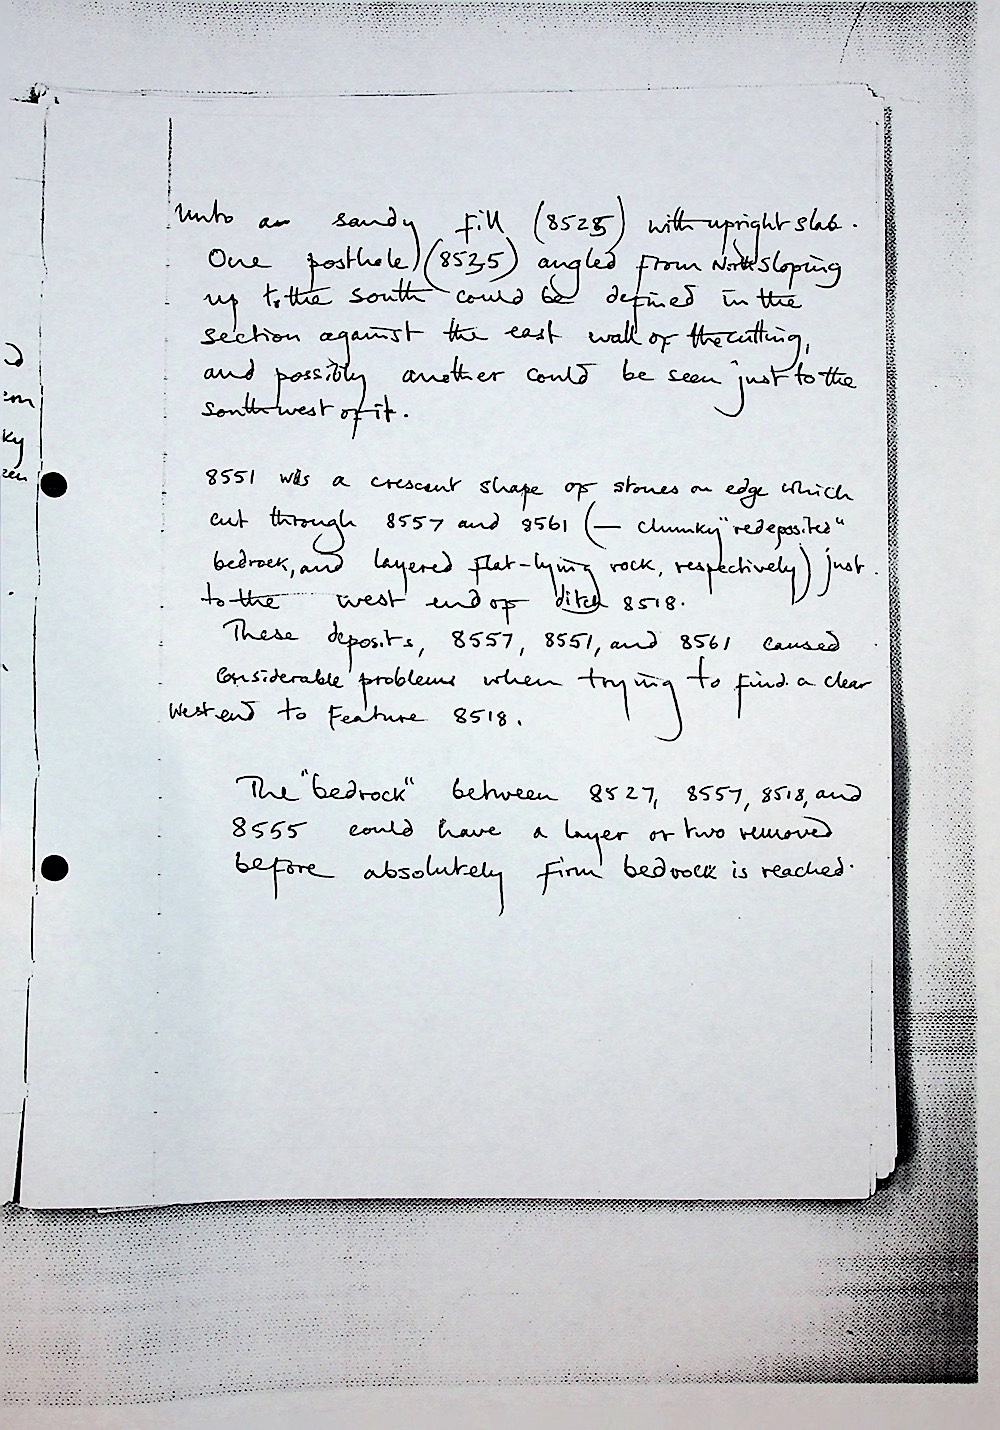 unto a sandy fill (8528) with upright slab.
One posthole (8535) angled from North sloping
up to the south could be defined in the
section against the east wall of the cutting,
and possibly another could be seen just to the
southwest of it.
8551 was a crescent shape of stones on edge which
cut through 8557 and 8561 (— chunky "redeposited"
bedrock, and layered flat-lying rock, respectively) just
to the west end of ditch 8518.
These deposits, 8557, 8551, and 8561 caused
considerable problems when trying to find a clear
west end to Feature 8518.
The "bedrock" between 8527, 8557, 8518, and
8555 could have a layer or two removed
before absolutely firm bedrock is reached.
ky